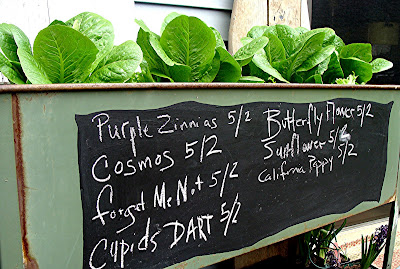 Purple Zinnias 5/2
Cosmos 5/2
forget Me Not 5/2
Cupids DART 5/2
Butterfly Flower 5/2
Sunflower 5/2
California Poppy 5/2